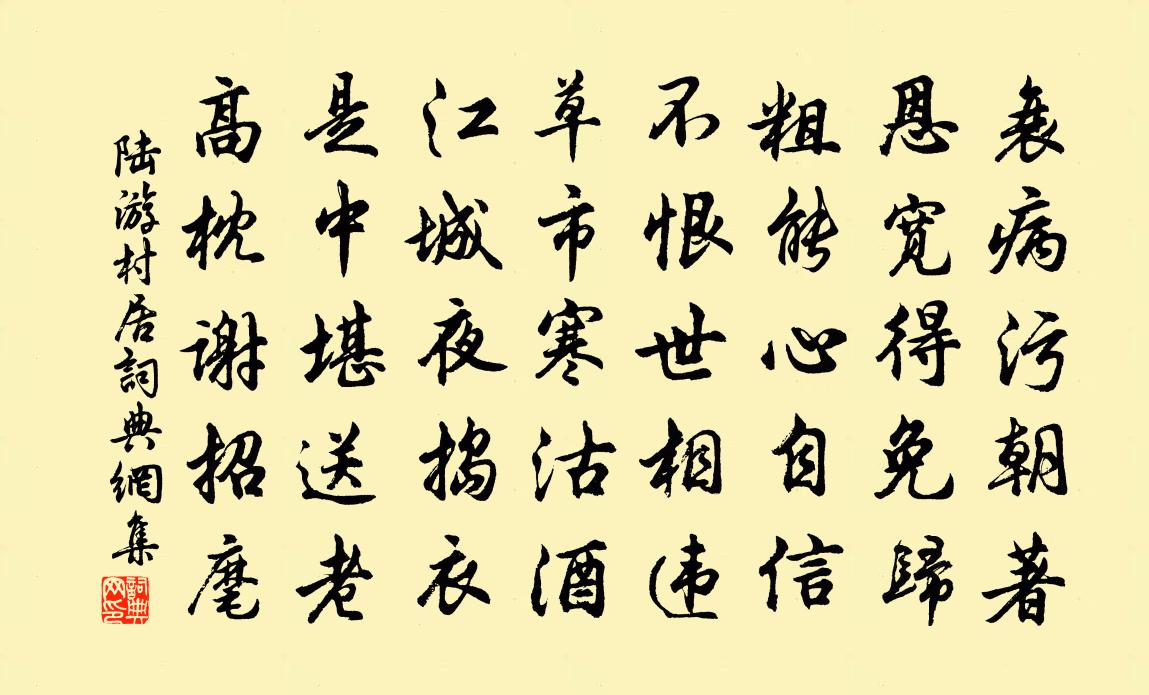 衰病污朝著
恩寛得免歸
粗能心自信
不恨世相违
草市寒沽酒
江城夜搗衣
是中堪送老
高枕谢招麾
陆游村居詞典網集
詞典网印